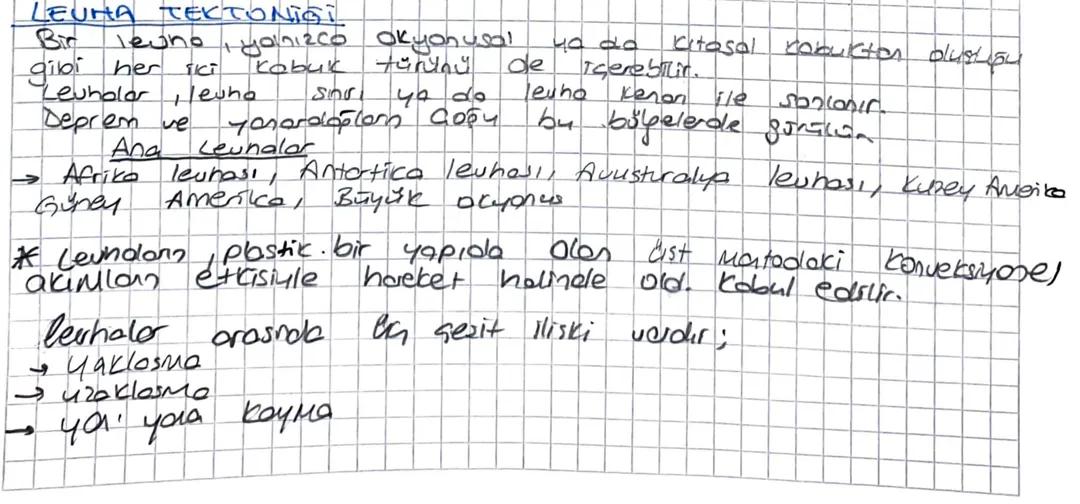 LEVHA TEKTONİĞİ
Bir levha, yalnızca okyanusal ya da kıtasal kabuktan oluştuğu
gibi her iki kabuk türünü de içerebilir.
Levhalar, levha sınırı ya da levha kenarı ile sonlanır.
Deprem ve yanardağların çoğu bu bölgelerde görülür.
Ana Levhalar
→ Afrika levhası, Antartica levhası, Avusturalya levhası, Kuzey Amerika
Güney Amerika, Büyük okyanus
* Levhaların, plastik bir yapıda olan üst mantodaki konveksiyonel
akımların etkisiyle hareket halinde old. kabul edilir.
levhalar arasında üç çeşit ilişki vardır;
→ yaklaşma
→ uzaklaşma
→ yan yana kayma